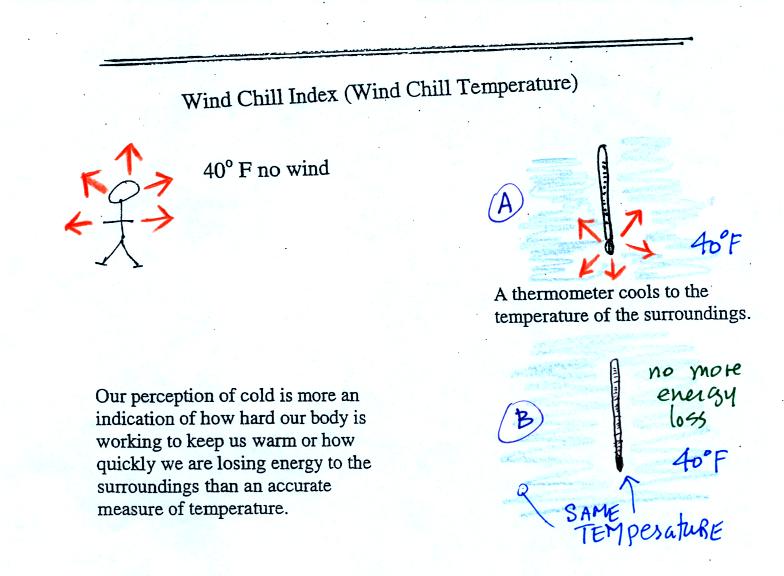 Wind Chill Index (Wind Chill Temperature)
40° F no wind
A
40°F
A thermometer cools to the
temperature of the surroundings.
Our perception of cold is more an
indication of how hard our body is
working to keep us warm or how
quickly we are losing energy to the
surroundings than an accurate
measure of temperature.
B
no more
energy
loss
40°F
SAME
TEMPERATURE